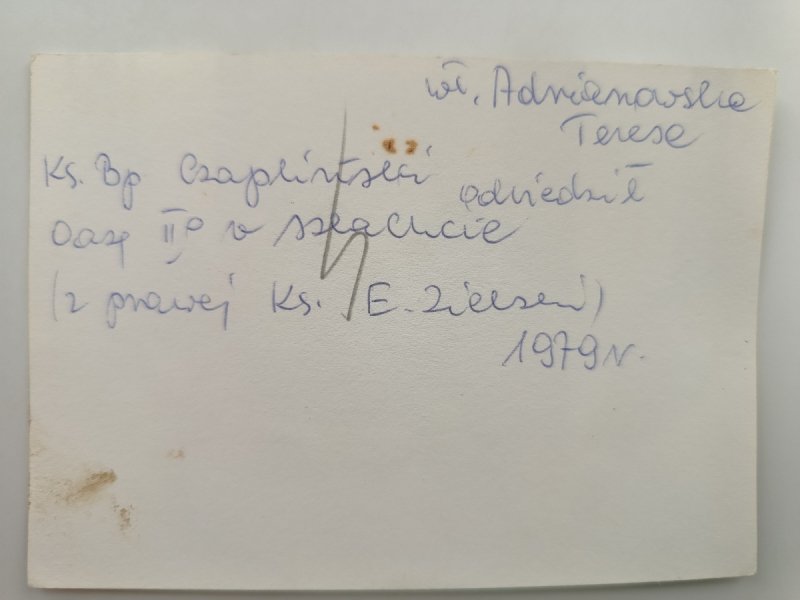 wł. Adrianowska
Teresa
Ks. Bp Czapliński odwiedził
Oazę IIº w Szlachcie
(z prawej Ks. E. Zieliński)
1979 r.